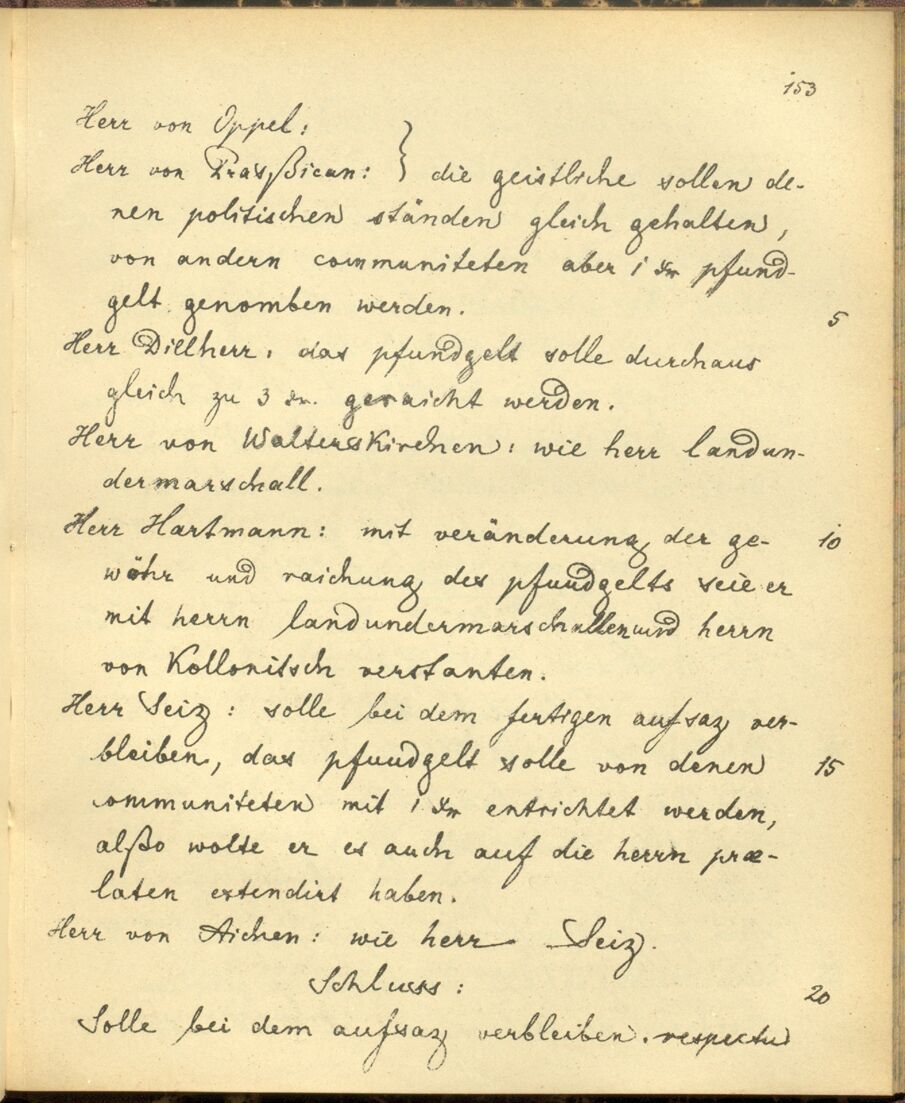 153
Herr von Oppel:
Herr von Prasßican: } die geistliche sollen de-
nen politischen ständen gleich gehalten,
von andern communiteten aber 1 pfund-
gelt genomben werden.
5
Herr Dillherr: das pfundgelt solle durchaus
gleich zu 3 geraicht werden.
Herr von Walterskirchen: wie herr landun-
dermarschall.
Herr Hartmann: mit veränderung der ge-
10
wöhr und raichung des pfundgelts seie er
mit herrn landundermarschallen und herrn
von Kollonitsch verstanten.
Herr Seiz: solle bei dem fertigen aufsaz ver-
bleiben, das pfundgelt solle von denen
15
communiteten mit 1 entrichtet werden,
alßo wolte er es auch auf die herrn præ-
laten extendirt haben.
Herr von Aichen: wie herr Seiz.
Schluss:
20
Solle bei dem aufsaz verbleiben. respectu